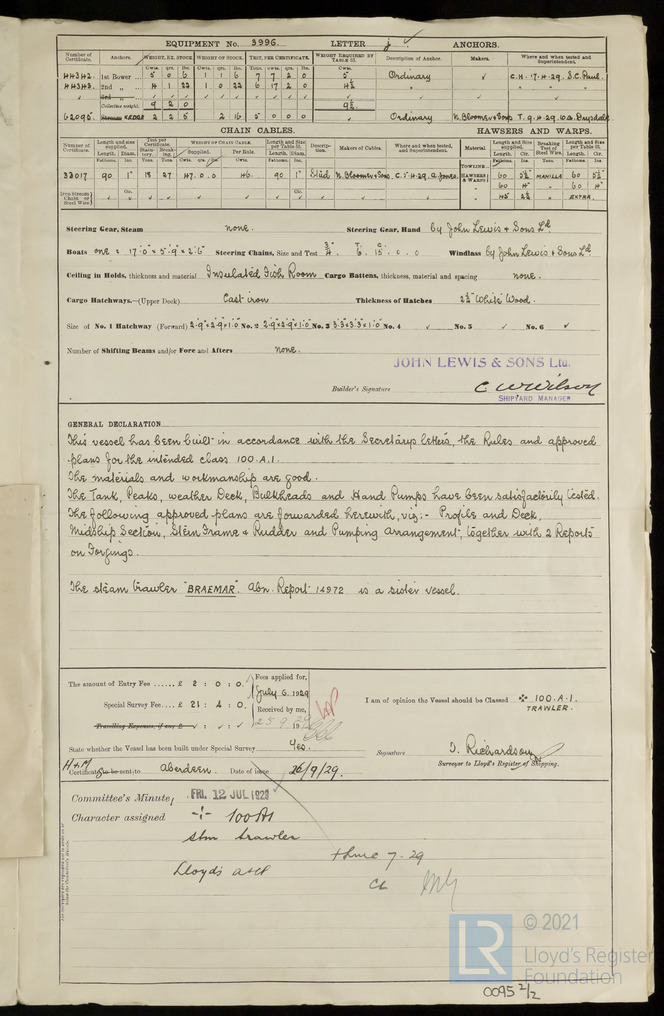 EQUIPMENT No. 3996. LETTER j ANCHORS.
Number of Certificate. Anchors. WEIGHT, EX. STOCK WEIGHT OF STOCK. TEST, PER CERTIFICATE. WEIGHT REQUIRED BY TABLE 31. Description of Anchor. Makers. Where and when tested and Superintendent.
Cwts. qrs. lbs. Cwts. qrs. lbs. Tons. cwts. qrs. lbs. Cwts.
44342. 1st Bower 5 0 6 1 1 6 7 7 2 0 5 Ordinary ✓ C.H. 17.4.29. S.C. Paul.
44343. 2nd „ 4 1 22 1 0 22 6 17 2 0 4½
3rd „
Collective weight. 9 2 0 9½
62095. Stream KEDGE 2 2 5 2 16 5 0 0 0 Ordinary N. Bloomer & Sons T. 9.4.29. W.A. Drysdale
CHAIN CABLES. HAWSERS AND WARPS.
Number of Certificate. Length and size supplied. Test per Certificate. WEIGHT OF CHAIN CABLE. Length and Size per Table 31. Description. Makers of Cables. Where and when tested, and Superintendent. Material. Length and size supplied. Breaking Test of Steel Wire. Length and size per Table 31.
Fathoms. Diam. Statutory. Breaking. Supplied. Per Rule. Length. Diam. Length. Cir. Length. Cir.
33017 90 1" 18 27 47.0.0 46. 90 1" Stud N. Bloomer & Sons. C.S. 4.29. A. Jones. HAWSERS & WARPS 60 5½" MANILLA 60 5½"
60 4" 60 4"
Iron Stream Chain or Steel Wire 45 2½" EXTRA.
TOWLINE
Steering Gear, Steam none. Steering Gear, Hand by John Lewis & Sons Ld
Boats one = 17.0 × 5.9 × 2.6 Steering Chains, Size and Test ¾" 6. 15. 0. 0 Windlass by John Lewis & Sons Ld
Ceiling in Holds, thickness and material Insulated Fish Room Cargo Battens, thickness, material and spacing none.
Cargo Hatchways.—(Upper Deck) Cast iron Thickness of Hatches 2½" White Wood.
Size of No. 1 Hatchway (Forward) 2.9 × 2.9 × 1.0 No. 2 2.9 × 2.9 × 1.0 No. 3 3.3 × 3.3 × 1.0 No. 4 ✓ No. 5 ✓ No. 6 ✓
Number of Shifting Beams and/or Fore and Afters none.
JOHN LEWIS & SONS Ltd.
Builder's Signature C W Wilson
SHIPYARD MANAGER
GENERAL DECLARATION
This vessel has been built in accordance with the Secretarys letters, the Rules and approved
plans for the intended class 100.A.1.
The materials and workmanship are good.
The Tank, Peaks, weather Deck, Bulkheads and Hand Pumps have been satisfactorily tested.
The following approved plans are forwarded herewith, viz:- Profile and Deck,
Midship Section, Stern Frame & Rudder and Pumping Arrangement, together with 2 Reports
on Forgings.
The steam trawler "BRAEMAR". Abn. Report 14972 is a sister vessel.
The amount of Entry Fee ...... £ 2 : 0 : 0.
Special Survey Fee.... £ 21 : 4 : 0.
Travelling Expenses, if any £
Fees applied for,
July 6. 1929
Received by me,
25.9.29
I am of opinion the Vessel should be Classed ✠ 100.A.1.
TRAWLER.
State whether the Vessel has been built under Special Survey Yes. Signature J. Richardson
Surveyor to Lloyd's Register of Shipping.
H + M
Certificate to be sent to Aberdeen. Date of issue 26/9/29.
Committee's Minute FRI. 12 JUL 1929
Character assigned ✠ 100A1
Stm trawler
Lloyd's A&CP
+ LMC 7.29
CL
© 2021
LR
Lloyd's Register
Foundation
0095 2/2